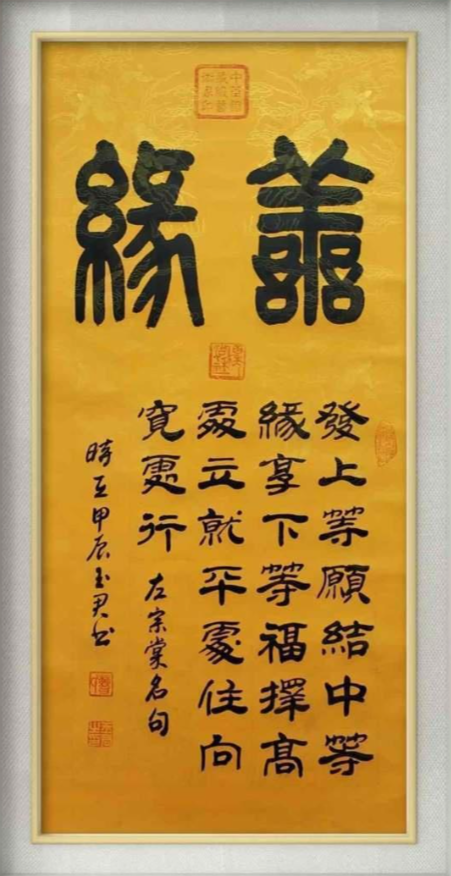 善緣
發上等願結中等
緣享下等福擇高
處立就平處住向
寬處行
左宗棠名句
時在甲辰玉君書